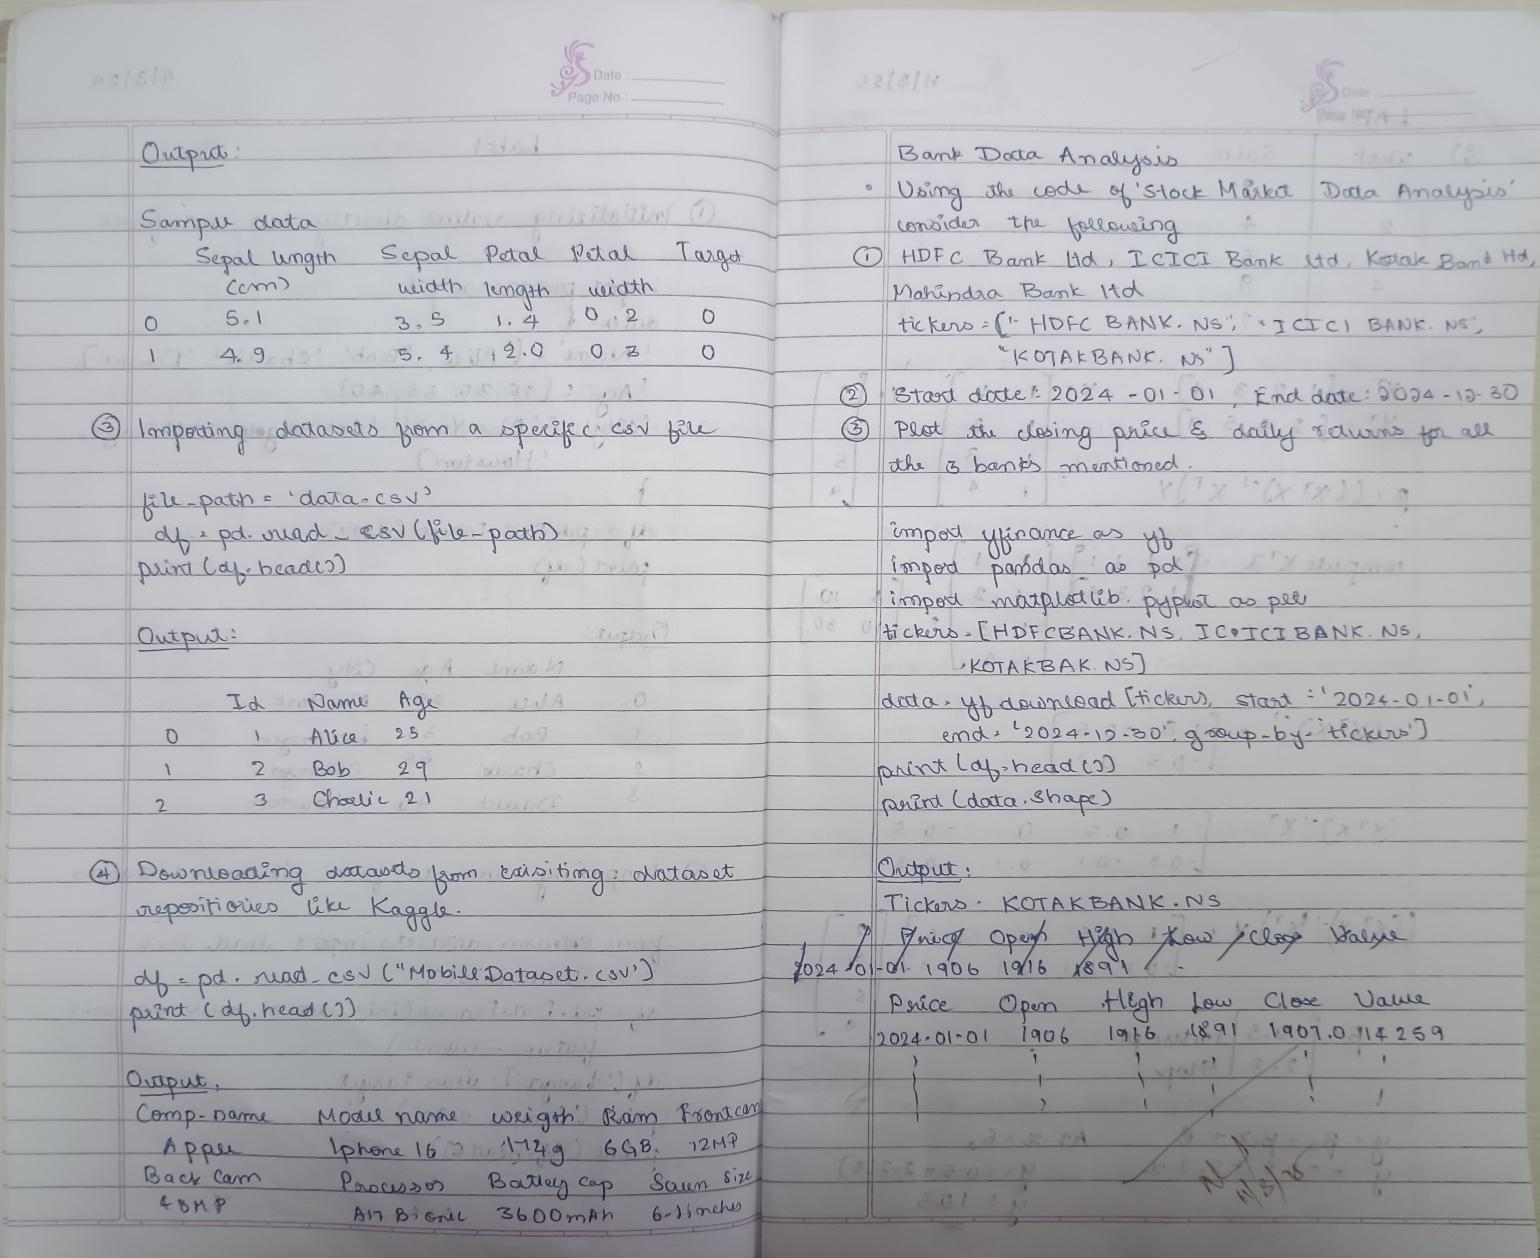 Date :
Page No. :
Output :
Sample data
Sepal length Sepal Petal Petal Target
(cm) width length width
0 5.1 3.5 1.4 0.2 0
1 4.9 5.4 2.0 0.3 0
③ Importing datasets from a specific csv file
file-path = 'data.csv'
df = pd.read_csv(file-path)
print(df.head())
Output:
Id Name Age
0 1 Alice 25
1 2 Bob 29
2 3 Charlie 21
④ Downloading datasets from exisiting dataset
repositiories like Kaggle.
df = pd.read_csv("MobileDataset.csv")
print(df.head())
Output,
Comp-name Model name weigth Ram Frontcam
Apple Iphone 16 174g 6GB. 12MP
Back Cam Processor Battey cap Screen size
48MP A17 Bionic 3600mAh 6-1inches
Bank Data Analysis
• Using the code of 'Stock Market Data Analysis'
consider the following
① HDFC Bank Ltd, ICICI Bank Ltd, Kotak Bank Ltd,
Mahindra Bank ltd
tickers = ["HDFC BANK.NS", "ICICI BANK.NS",
"KOTAKBANK.NS"]
② Start date: 2024-01-01, End date: 2024-12-30
③ Plot the closing price & daily returns for all
the 3 banks mentioned.
import yfinance as yf
import pandas as pd
import matplotlib.pyplot as
tickers = [HDFCBANK.NS, ICICIBANK.NS,
KOTAKBAK.NS]
data = yf download [tickers, start = '2024-01-01',
end = '2024-12-30', group-by = 'tickers']
print(df.head())
print(data.shape)
Output:
Tickers. KOTAKBANK.NS
Price Open High Low Close Value
2024-01-01 1906 1916 1891
Price Open High Low Close Value
2024-01-01 1906 1916 1891 1907.0 14259